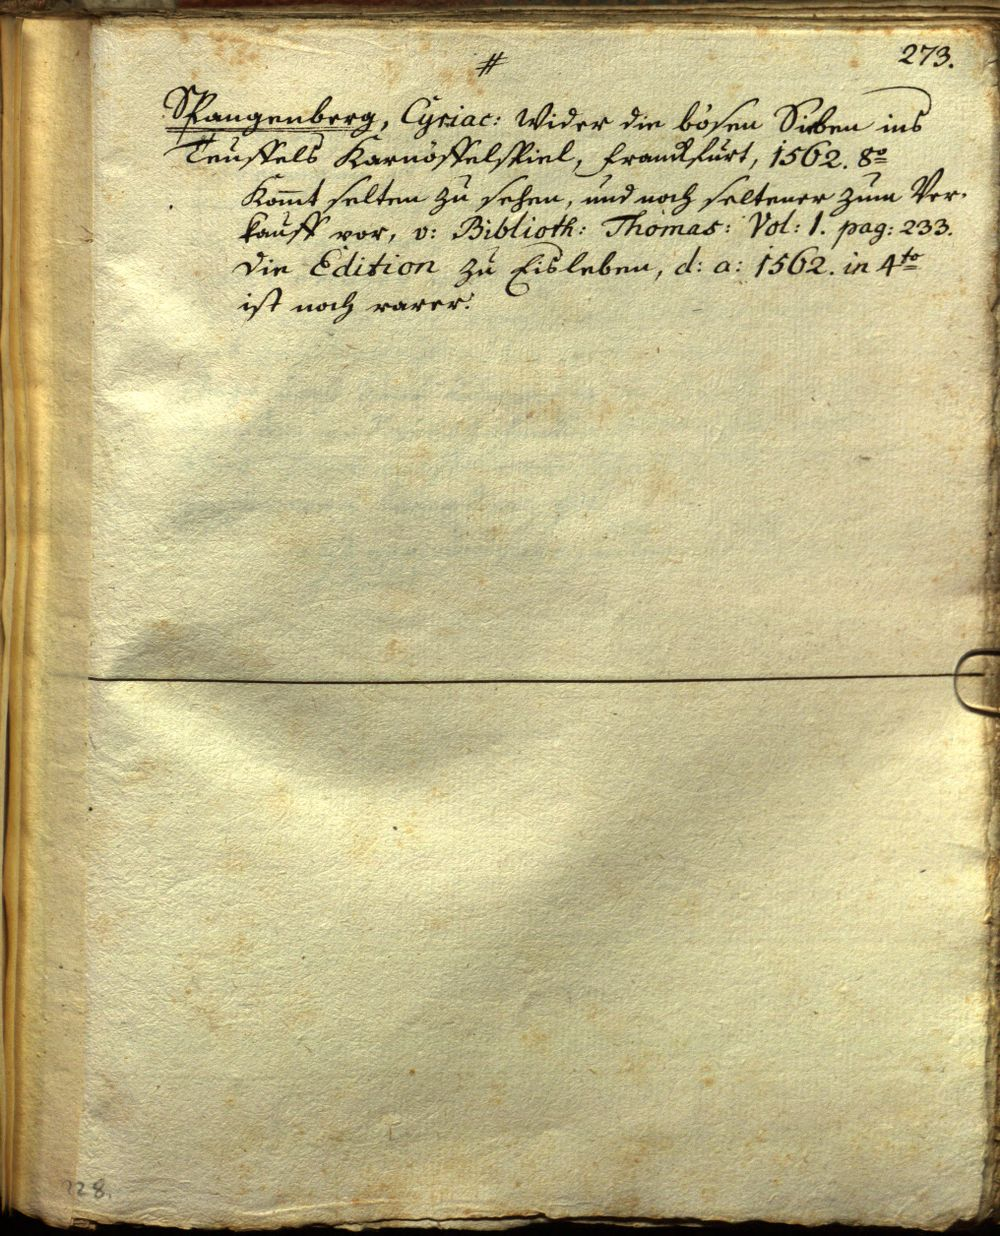 #
273.
Spangenberg, Cyriac: Wider die bösen Sieben ins
Teuffels Karnöffelspiel, Franckfurt, 1562. 8º
Kom̄t selten zu sehen, und noch seltener zum Ver-
kauff vor, v: Biblioth: Thomas: Vol: 1. pag: 233.
die Edition zu Eisleben, d: a: 1562. in 4to
ist noch rarer.